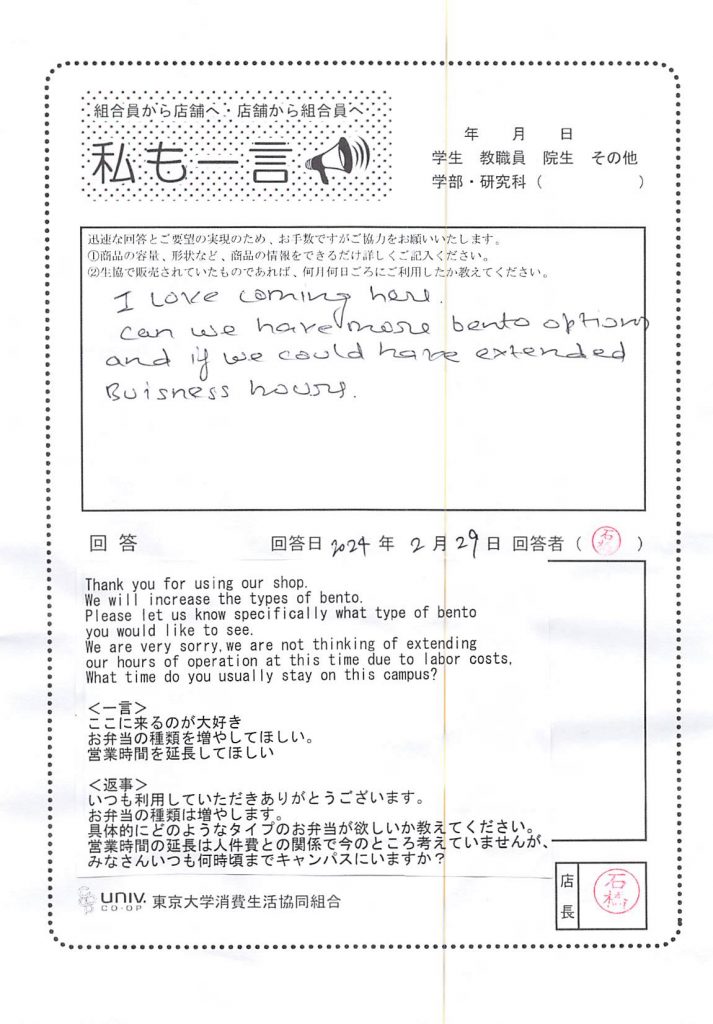 組合員から店舗へ・店舗から組合員へ
私も一言
年 月 日
学生 教職員 院生 その他
学部・研究科( )
迅速な回答とご要望の実現のため、お手数ですがご協力をお願いいたします。
①商品の容量、形状など、商品の情報をできるだけ詳しくご記入ください。
②生協で販売されていたものであれば、何月何日ごろにご利用したか教えてください。
I love coming here.
can we have more bento options
and if we could have extended
Buisness hours.
回答 回答日 2024 年 2 月 29 日 回答者 ( 石橋 )
Thank you for using our shop.
We will increase the types of bento.
Please let us know specifically what type of bento
you would like to see.
We are very sorry,we are not thinking of extending
our hours of operation at this time due to labor costs,
What time do you usually stay on this campus?
<一言>
ここに来るのが大好き
お弁当の種類を増やしてほしい。
営業時間を延長してほしい
<返事>
いつも利用していただきありがとうございます。
お弁当の種類は増やします。
具体的にどのようなタイプのお弁当が欲しいか教えてください。
営業時間の延長は人件費との関係で今のところ考えていませんが、
みなさんいつも何時頃までキャンパスにいますか？
UNIV. CO-OP 東京大学消費生活協同組合
店長 石橋